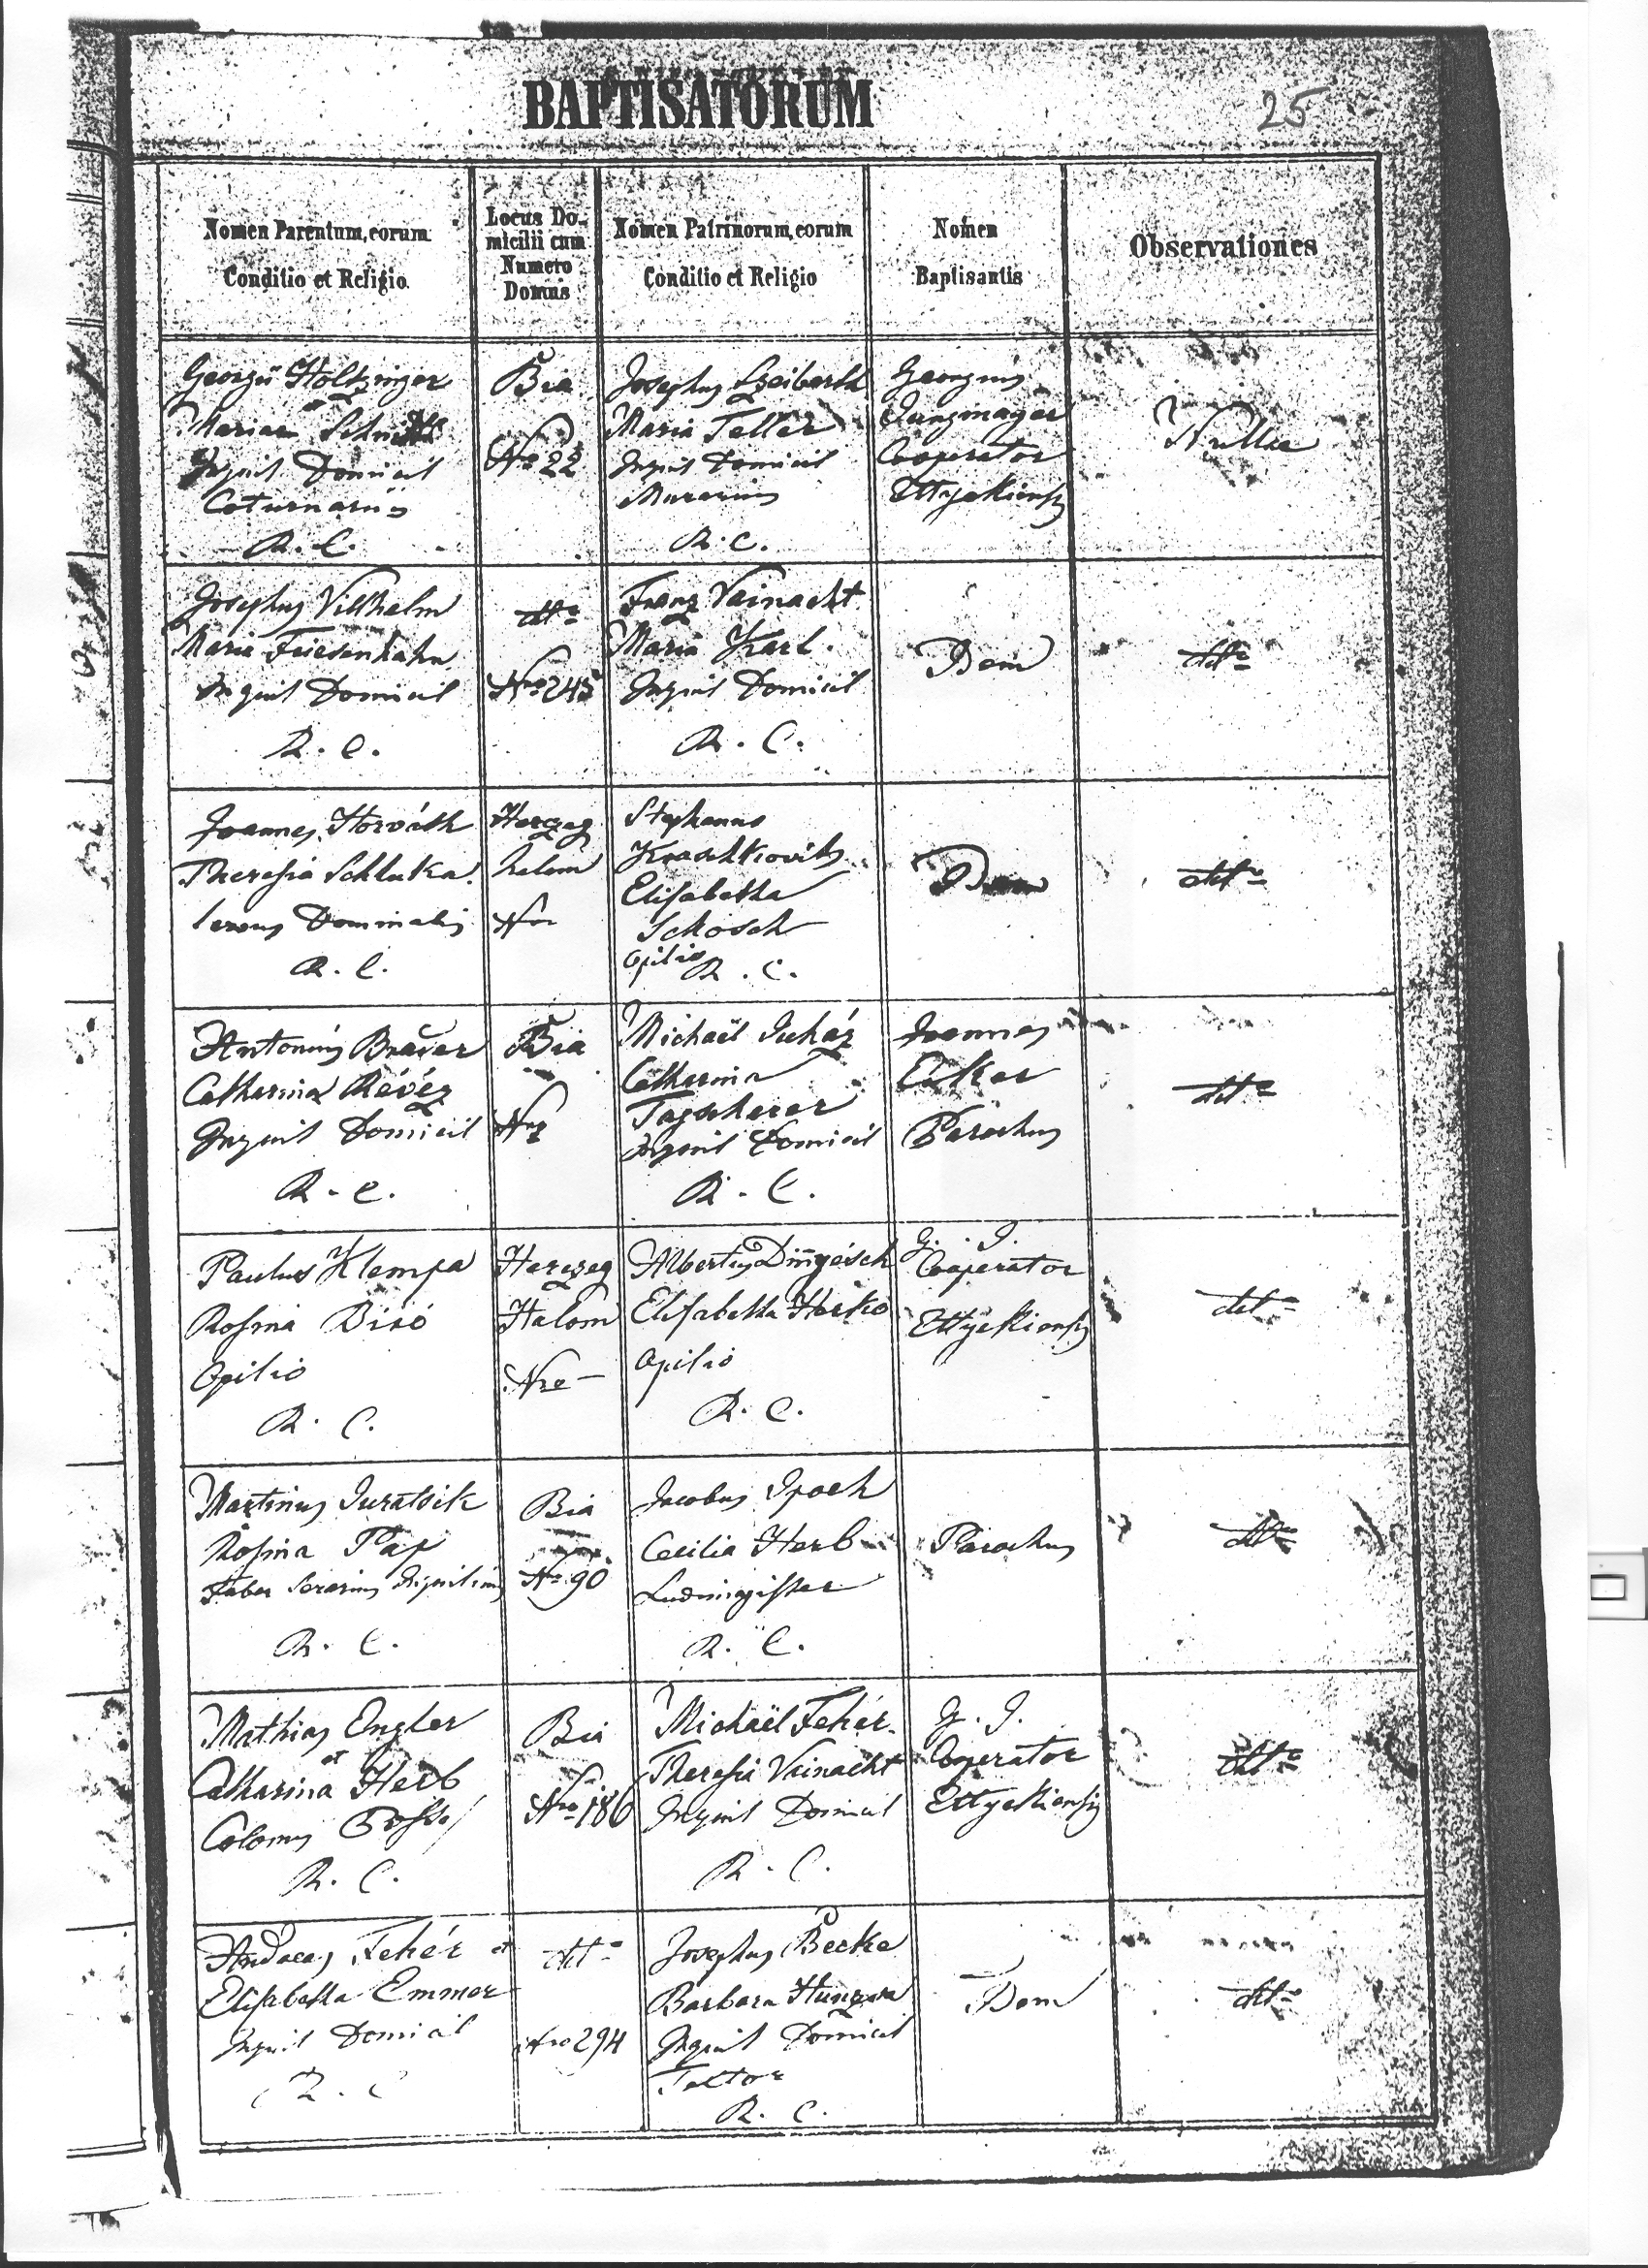 BAPTISATORUM
25
Nomen Parentum, eorum
Conditio et Religio.
Locus Do-
micilii cum
Numero
Domus
Nomen Patrinorum, eorum
Conditio et Religio
Nomen
Baptisantis
Observationes
Georgii Holtzinger
et
Mariae
Inquil Domicil
Coturnarius
R. C.
Bia
Nro 22
Josephus Szeiberth
Maria Teller
Inquil Domicil
Murarius
R. C.
Georgius
Jungmayer
Cooperator
Ettyekiensis
Nullae
Josephus Villhelm
Maria Friesenhahn
Inquil Domicil
R. C.
dtto
Nro 245
Franz Vainacht
Maria Karl.
Inquil Domicil
R. C.
Dem
dtto
Joannes Horváth
Theresia Schluka.
Servus Dominalis
R. C.
Herczeg
halom
Nro
Stephanus
Kraschkovits
Elisabetha
Schosch
Opilio
R. C.
dtto
Antonius Brauer
Catharina Révész
Inquil Domicil
R. C.
Bia
Michaël Juhász
Catharina
Tagscherer
Inquil Domicil
R. C.
Joannes
Parochus
dtto
Paulus Klempa
Rosina Biró
Opilio
R. C.
Herczeg
Halom
Nro —
Albertus
Elisabetha Horko
Opilio
R. C.
G. J.
Cooperator
Ettyekiensis
dtto
Martinus Juratsik
Rosina Pap
Faber Serarius Inquilinus
R. C.
Bia
Nro 90
Jacobus Spoch
Cecilia Herb
Ludimagister
R. C.
Parochus
dtto
Mathias Engler
et
Catharina Herb
Colonus
R. C.
Bia
Nro 186
Michaël Fehér.
Theresia Vainacht
Inquil Domicil
R. C.
G. J.
Cooperator
Ettyekiensis
dtto
Andreas Fehér et
Elisabetha Emmer
Inquil Domicil
R. C
dtto
Nro 294
Josephus Becke
Barbara
Inquil Domicil
R. C.
Dem
dtto